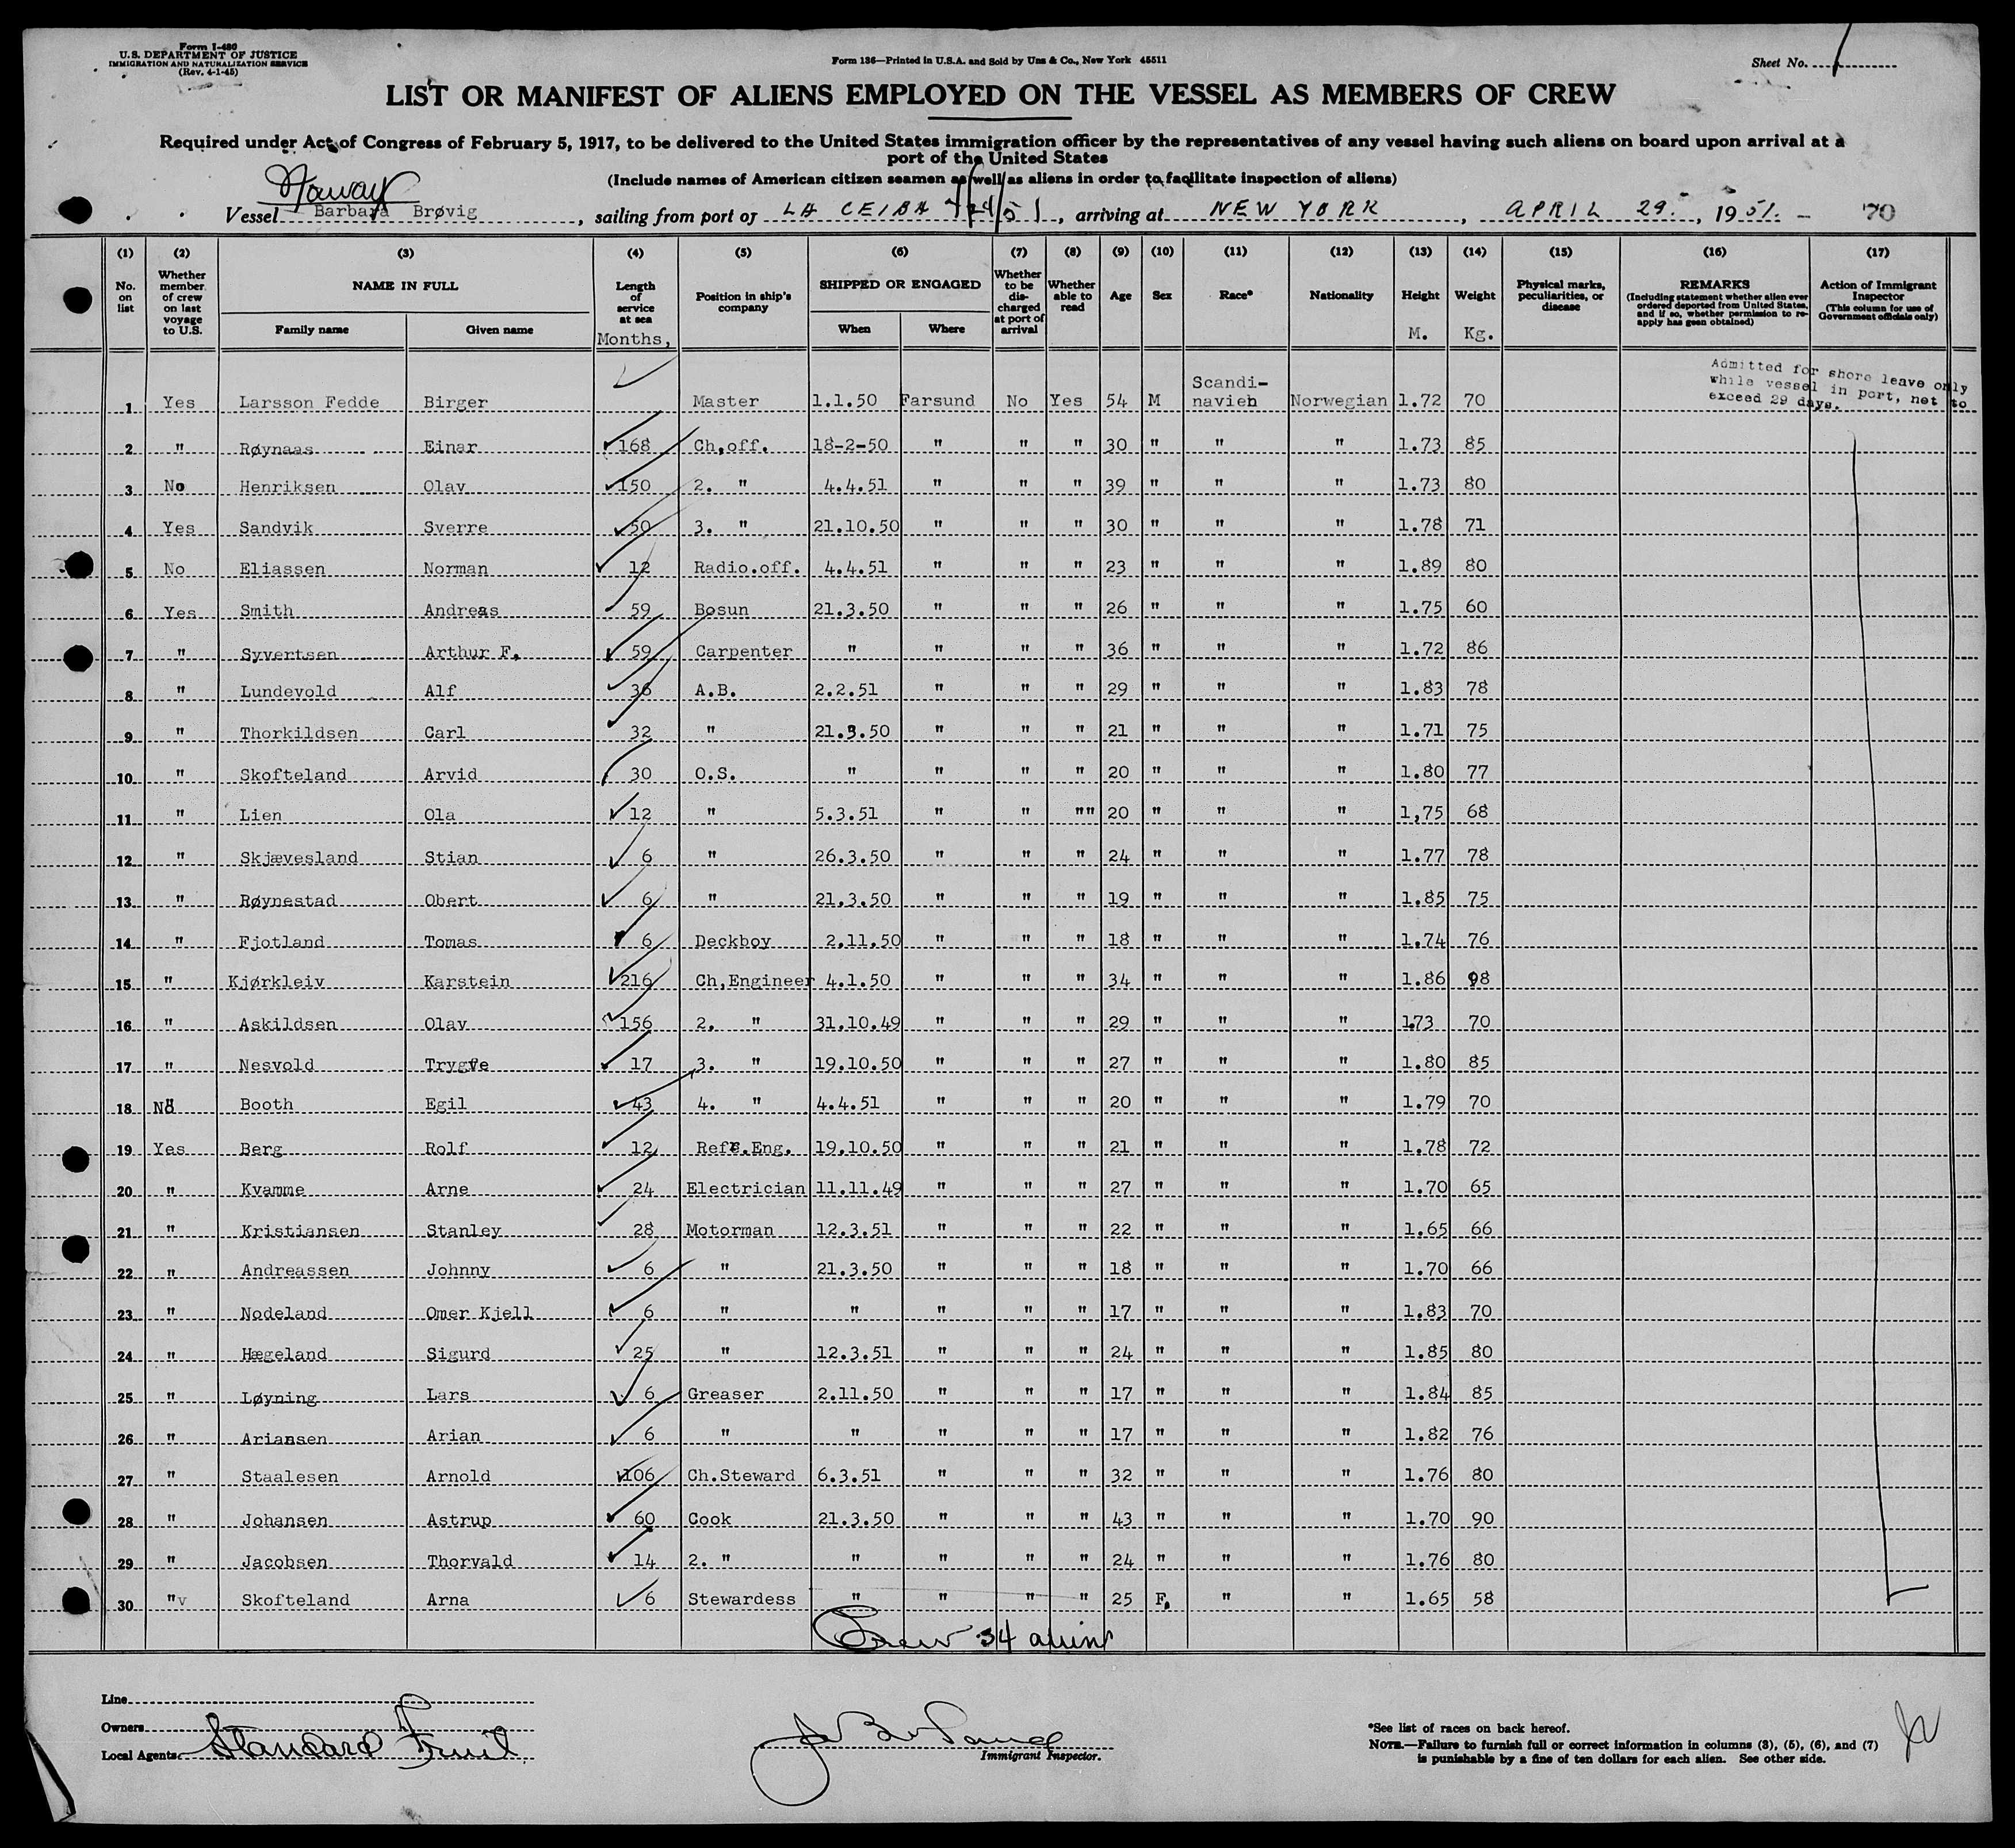 Form I-480
U. S. DEPARTMENT OF JUSTICE
IMMIGRATION AND NATURALIZATION SERVICE
(Rev. 4-1-45)
Form 136—Printed in U.S.A. and Sold by Unz & Co., New York 45511
Sheet No. 1
LIST OR MANIFEST OF ALIENS EMPLOYED ON THE VESSEL AS MEMBERS OF CREW
Required under Act of Congress of February 5, 1917, to be delivered to the United States immigration officer by the representatives of any vessel having such aliens on board upon arrival at a
port of the United States
(Include names of American citizen seamen as well as aliens in order to facilitate inspection of aliens)
Vessel Barbara Brøvig, sailing from port of LA CEIBA 4/24/51, arriving at NEW YORK, APRIL 29, 1951. 70
(1) (2) (3) (4) (5) (6) (7) (8) (9) (10) (11) (12) (13) (14) (15) (16) (17)
No. on list
Whether member of crew on last voyage to U.S.
NAME IN FULL
Family name Given name
Length of service at sea
Months,
Position in ship's company
SHIPPED OR ENGAGED
When Where
Whether to be discharged at port of arrival
Whether able to read
Age
Sex
Race*
Nationality
Height
M.
Weight
Kg.
Physical marks, peculiarities, or disease
REMARKS
(Including statement whether alien ever ordered deported from United States, and if so, whether permission to reapply has been obtained)
Action of Immigrant Inspector
(This column for use of Government officials only)
Admitted for shore leave only
while vessel in port, not to
exceed 29 days.
1 Yes Larsson Fedde Birger Master 1.1.50 Farsund No Yes 54 M Scandinavien Norwegian 1.72 70
2 " Røynaas Einar 168 Ch.off. 18-2-50 " " " 30 " " " 1.73 85
3 No Henriksen Olav 150 2. " 4.4.51 " " " 39 " " " 1.73 80
4 Yes Sandvik Sverre 50 3. " 21.10.50 " " " 30 " " " 1.78 71
5 No Eliassen Norman 12 Radio.off. 4.4.51 " " " 23 " " " 1.89 80
6 Yes Smith Andreas 59 Bosun 21.3.50 " " " 26 " " " 1.75 60
7 " Syvertsen Arthur F. 59 Carpenter " " " " 36 " " " 1.72 86
8 " Lundevold Alf 36 A.B. 2.2.51 " " " 29 " " " 1.83 78
9 " Thorkildsen Carl 32 " 21.3.50 " " " 21 " " " 1.71 75
10 " Skofteland Arvid 30 O.S. " " " " 20 " " " 1.80 77
11 " Lien Ola 12 " 5.3.51 " " "" 20 " " " 1,75 68
12 " Skjævesland Stian 6 " 26.3.50 " " " 24 " " " 1.77 78
13 " Røynestad Obert 6 " 21.3.50 " " " 19 " " " 1.85 75
14 " Fjotland Tomas 6 Deckboy 2.11.50 " " " 18 " " " 1.74 76
15 " Kjørkleiv Karstein 216 Ch,Engineer 4.1.50 " " " 34 " " " 1.86 98
16 " Askildsen Olav 156 2. " 31.10.49 " " " 29 " " " 1.73 70
17 " Nesvold Trygve 17 3. " 19.10.50 " " " 27 " " " 1.80 85
18 No Booth Egil 43 4. " 4.4.51 " " " 20 " " " 1.79 70
19 Yes Berg Rolf 12 Refr.Eng. 19.10.50 " " " 21 " " " 1.78 72
20 " Kvamme Arne 24 Electrician 11.11.49 " " " 27 " " " 1.70 65
21 " Kristiansen Stanley 28 Motorman 12.3.51 " " " 22 " " " 1.65 66
22 " Andreassen Johnny 6 " 21.3.50 " " " 18 " " " 1.70 66
23 " Nodeland Omer Kjell 6 " " " " " 17 " " " 1.83 70
24 " Hægeland Sigurd 25 " 12.3.51 " " " 24 " " " 1.85 80
25 " Løyning Lars 6 Greaser 2.11.50 " " " 17 " " " 1.84 85
26 " Ariansen Arian 6 " " " " " 17 " " " 1.82 76
27 " Staalesen Arnold 106 Ch.Steward 6.3.51 " " " 32 " " " 1.76 80
28 " Johansen Astrup 60 Cook 21.3.50 " " " 43 " " " 1.70 90
29 " Jacobsen Thorvald 14 2. " " " " " 24 " " " 1.76 80
30 "v Skofteland Arna 6 Stewardess " " " " 25 F. " " 1.65 58
Crew 34 aliens
Line
Owners
Local Agents Standard Fruit
Immigrant Inspector.
*See list of races on back hereof.
NOTE.—Failure to furnish full or correct information in columns (3), (5), (6), and (7)
is punishable by a fine of ten dollars for each alien. See other side.